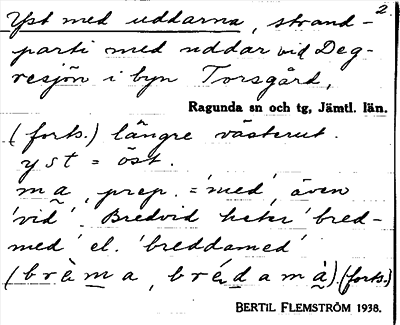 2.
Yst med uddarna, strand-
parti med uddar vid Deg-
resjön i byn Torsgård,
Ragunda sn och tg, Jämtl. län.
(forts.) längre västerut.
yst = öst.
ma, prep. = 'med', även
'vid'. Bredvid heter 'bred-
med' el. 'breddamed'
(brèma, brédamà) (forts.)
BERTIL FLEMSTRÖM 1938.